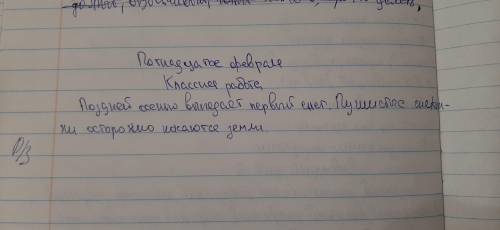 Пятнадцатое февраля
Классная работа
Поздней осенью выпадает первый снег. Пушистые снежин-
ки осторожно касаются земли.
Р/З